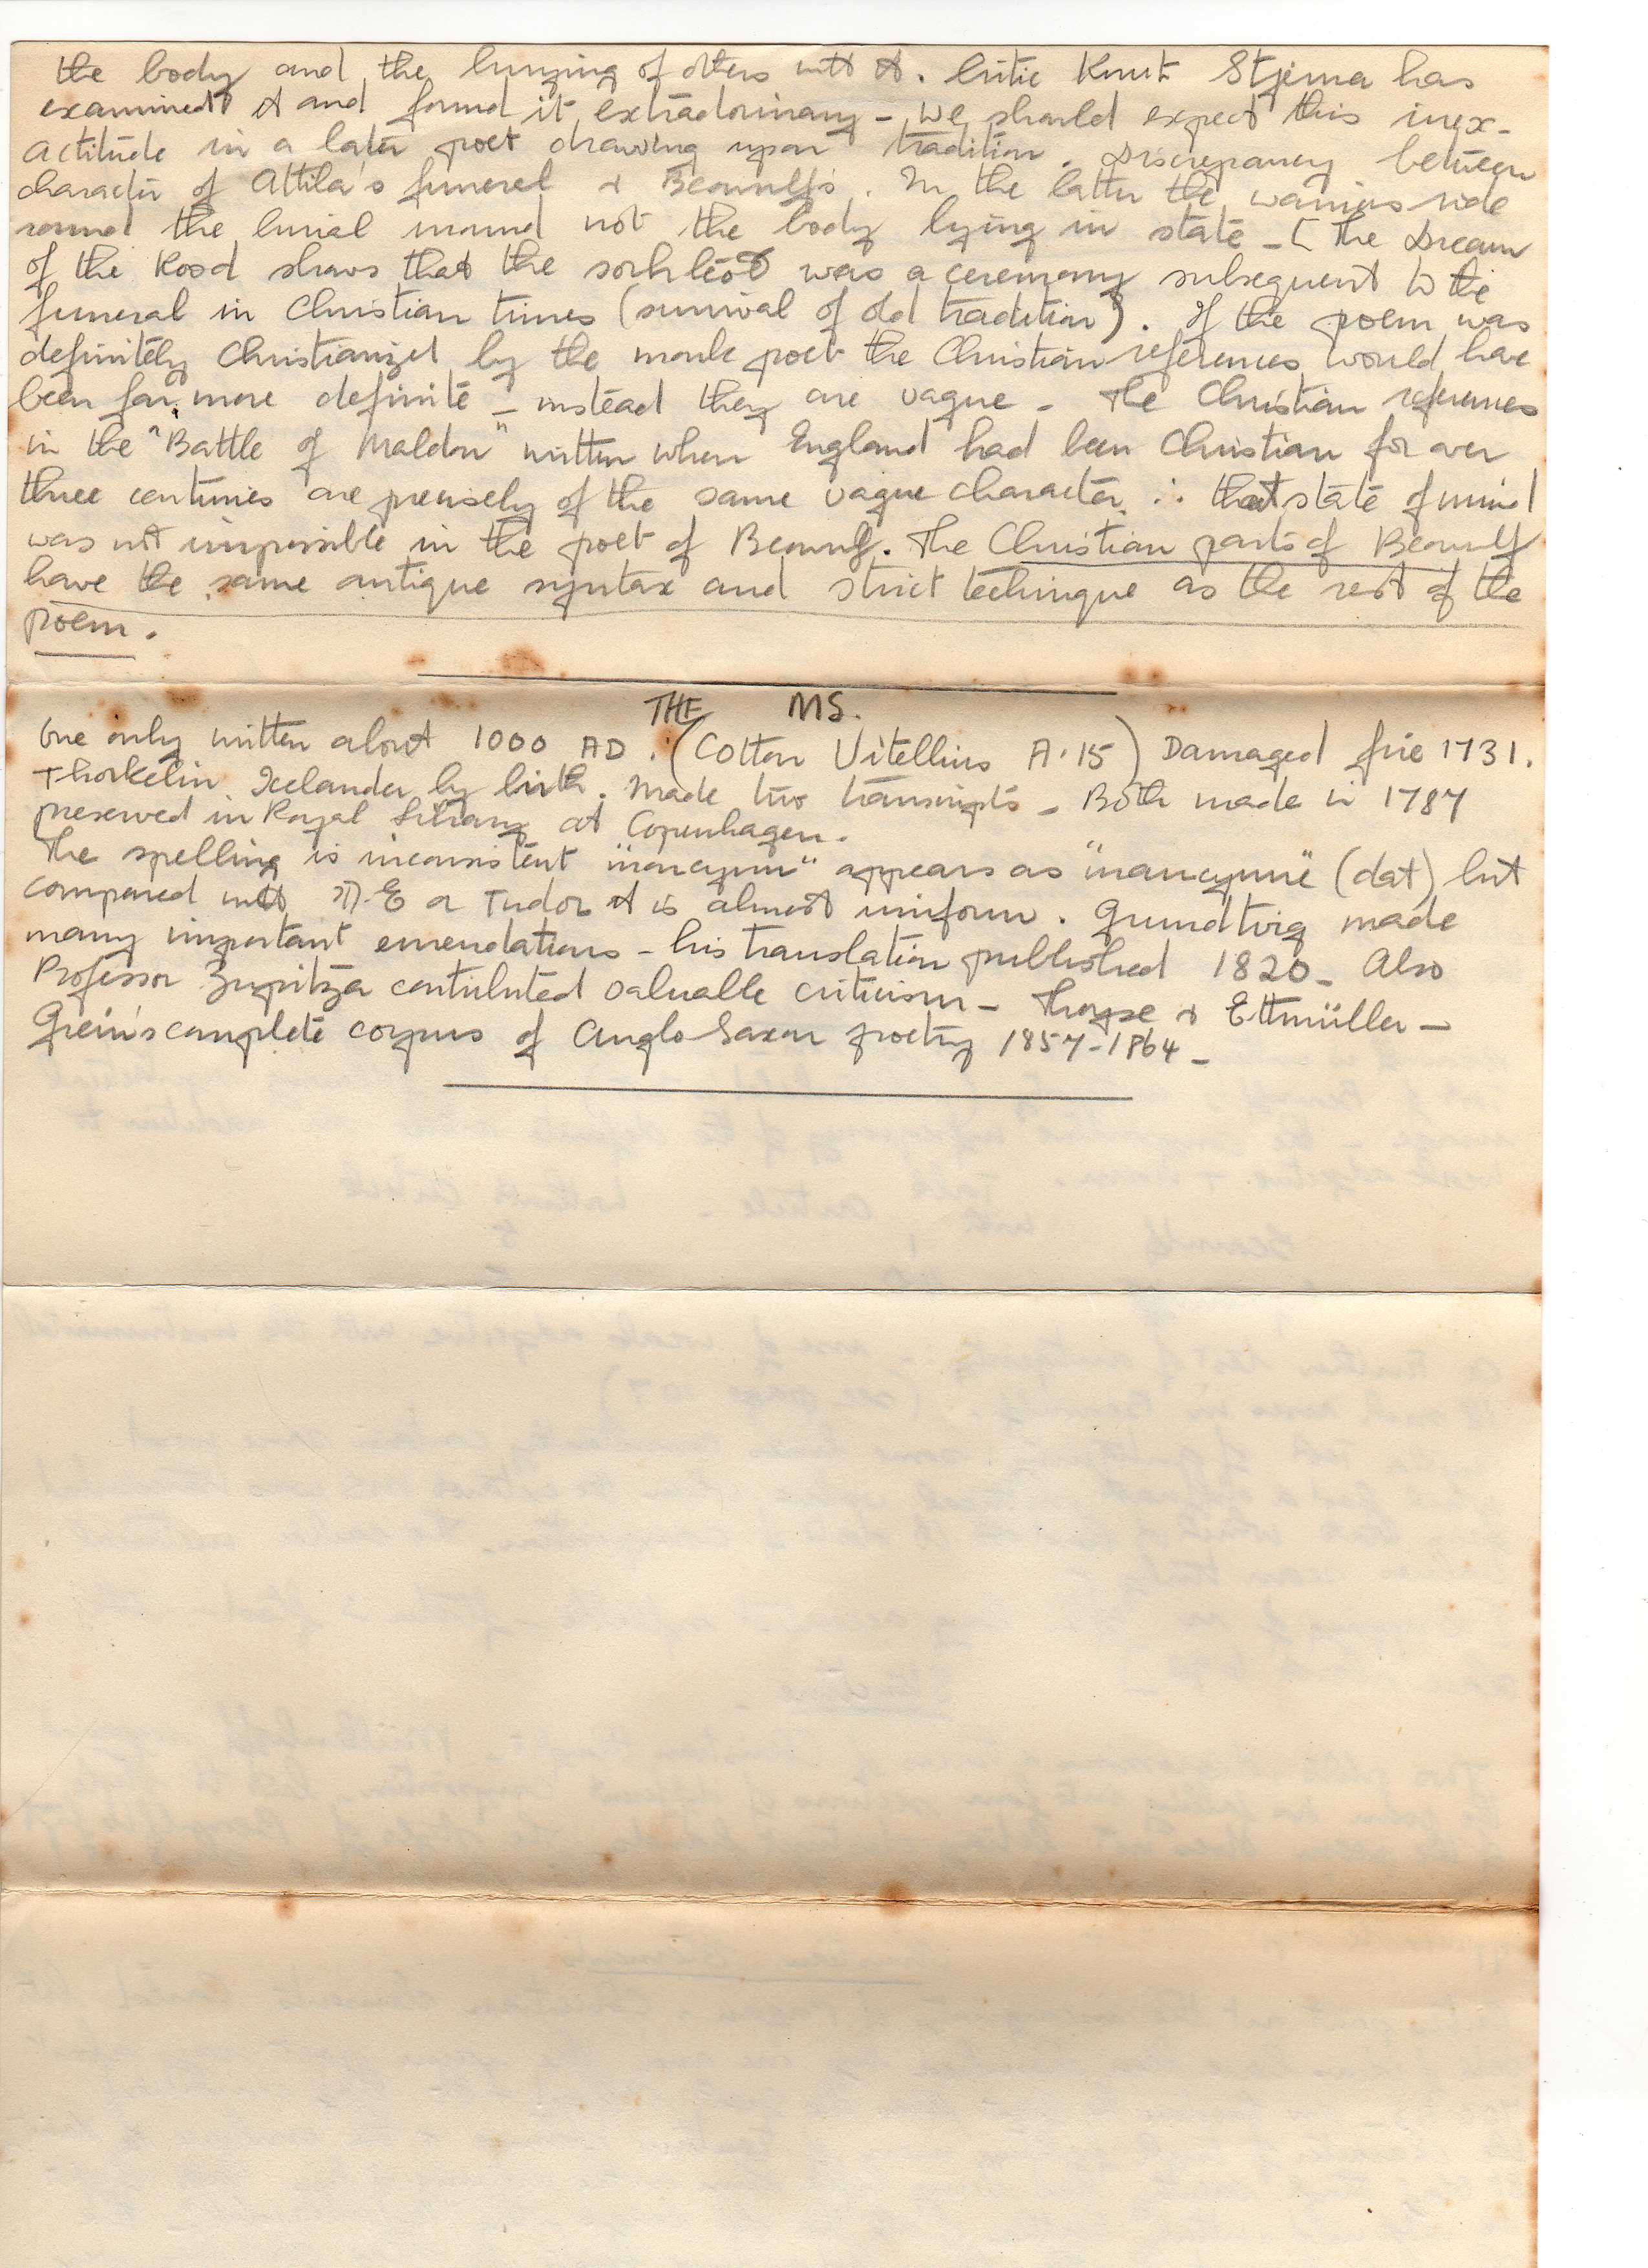 the body and the burying of others with it. Critic Knut Stjerna has
examined it and found it extradorinary - we should expect this inex-
actitude in a later poet drawing upon tradition. Discrepancy between
character of Attila's funeral & Beowulf's. In the latter the warriors ride
round the burial mound not the body lying in state - [ The Dream
of the Rood shows that the sorhleoð was a ceremony subsequent to the
funeral in Christian times (survival of old tradition). If the poem was
definitely Christianized by the monk poet the Christian references would have
been far more definite - instead they are vague - The Christian references
in the "Battle of Maldon" written when England had been Christian for over
three centuries are precisely of the same vague character ∴ that state of mind
was not impossible in the poet of Beowulf. The Christian parts of Beowulf
have the same antique syntax and strict technique as the rest of the
poem.
THE MS.
One only written about 1000 AD. (Cotton Vitellius A.15) Damaged fire 1731.
Thorkelin Icelander by birth. Made two transcripts - Both made in 1787
preserved in Royal Library at Copenhagen.
The spelling is inconsistent "mancynn" appears as "mancynne" (dat) but
compared with M.E or Tudor it is almost uniform. Grundtvig made
many important emendations - his translation published 1820 - Also
Professor Zupitza contributed valuable criticism - Thorpe & Ettmüller -
Grein's complete corpus of Anglo Saxon poetry 1857-1864 -